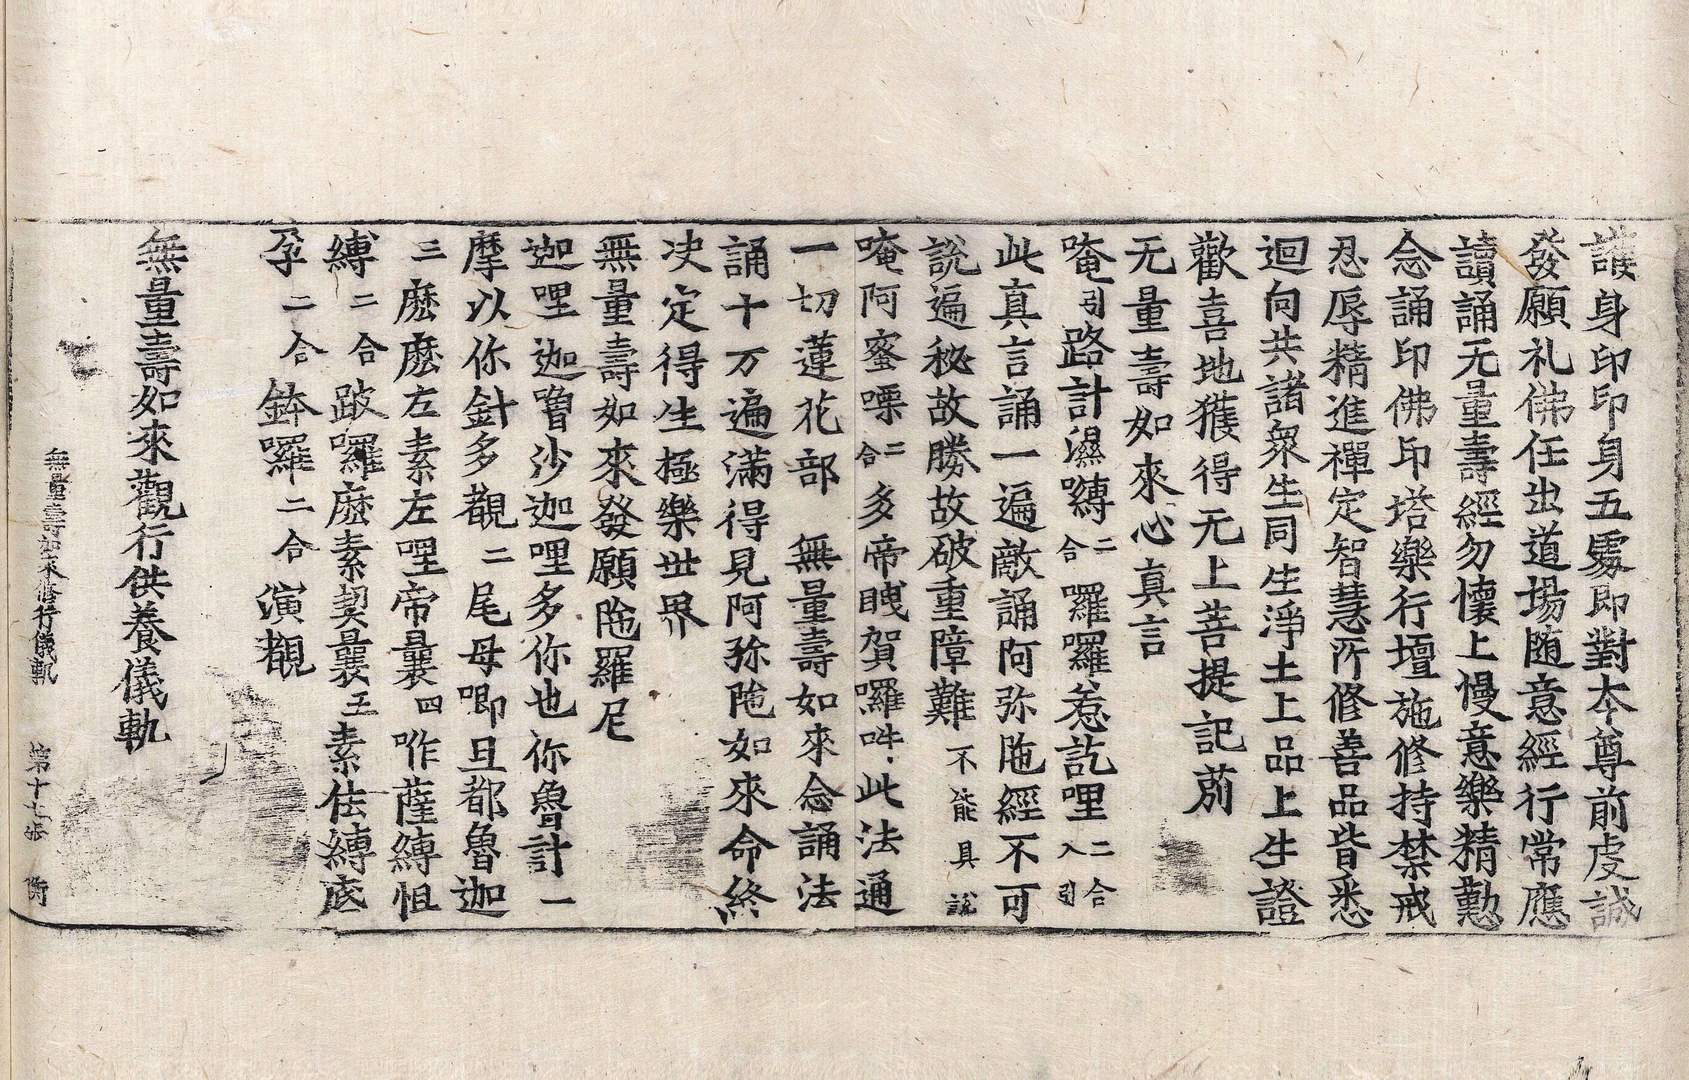 護身印印身五處即對本尊前虔誠
發願礼佛任出道場随意經行常應
讀誦无量壽經勿懷上慢意樂精勤
念誦印佛印塔樂行壇施修持禁戒
忍辱精進禪定智慧所修善品皆悉
迴向共諸衆生同生淨土上品上生證
歡喜地獲得无上菩提記莂
无量壽如來心真言
唵引路計濕嚩二合囉囉惹訖哩二合入引
此真言誦一遍敵誦阿弥陁經不可
說遍秘故勝故破重障難不能具說
唵阿蜜㗚二合多帝賀囉吽此法通
一切蓮花部 無量壽如來念誦法
誦十万遍滿得見阿弥陁如來命終
決定得生極樂世界
無量壽如來發願陁羅尼
迦哩迦嚕沙迦哩多你也你魯計一
摩以你針多覩二尾母唧旦都魯迦
三麽麽左素左哩帝曩四咋薩嚩怛
嚩二合跛囉麽素契曩五素佉嚩底
孕二合鉢囉二合演覩
無量壽如來觀行供養儀軌
無量壽如來修行儀軌 第十七張 衡